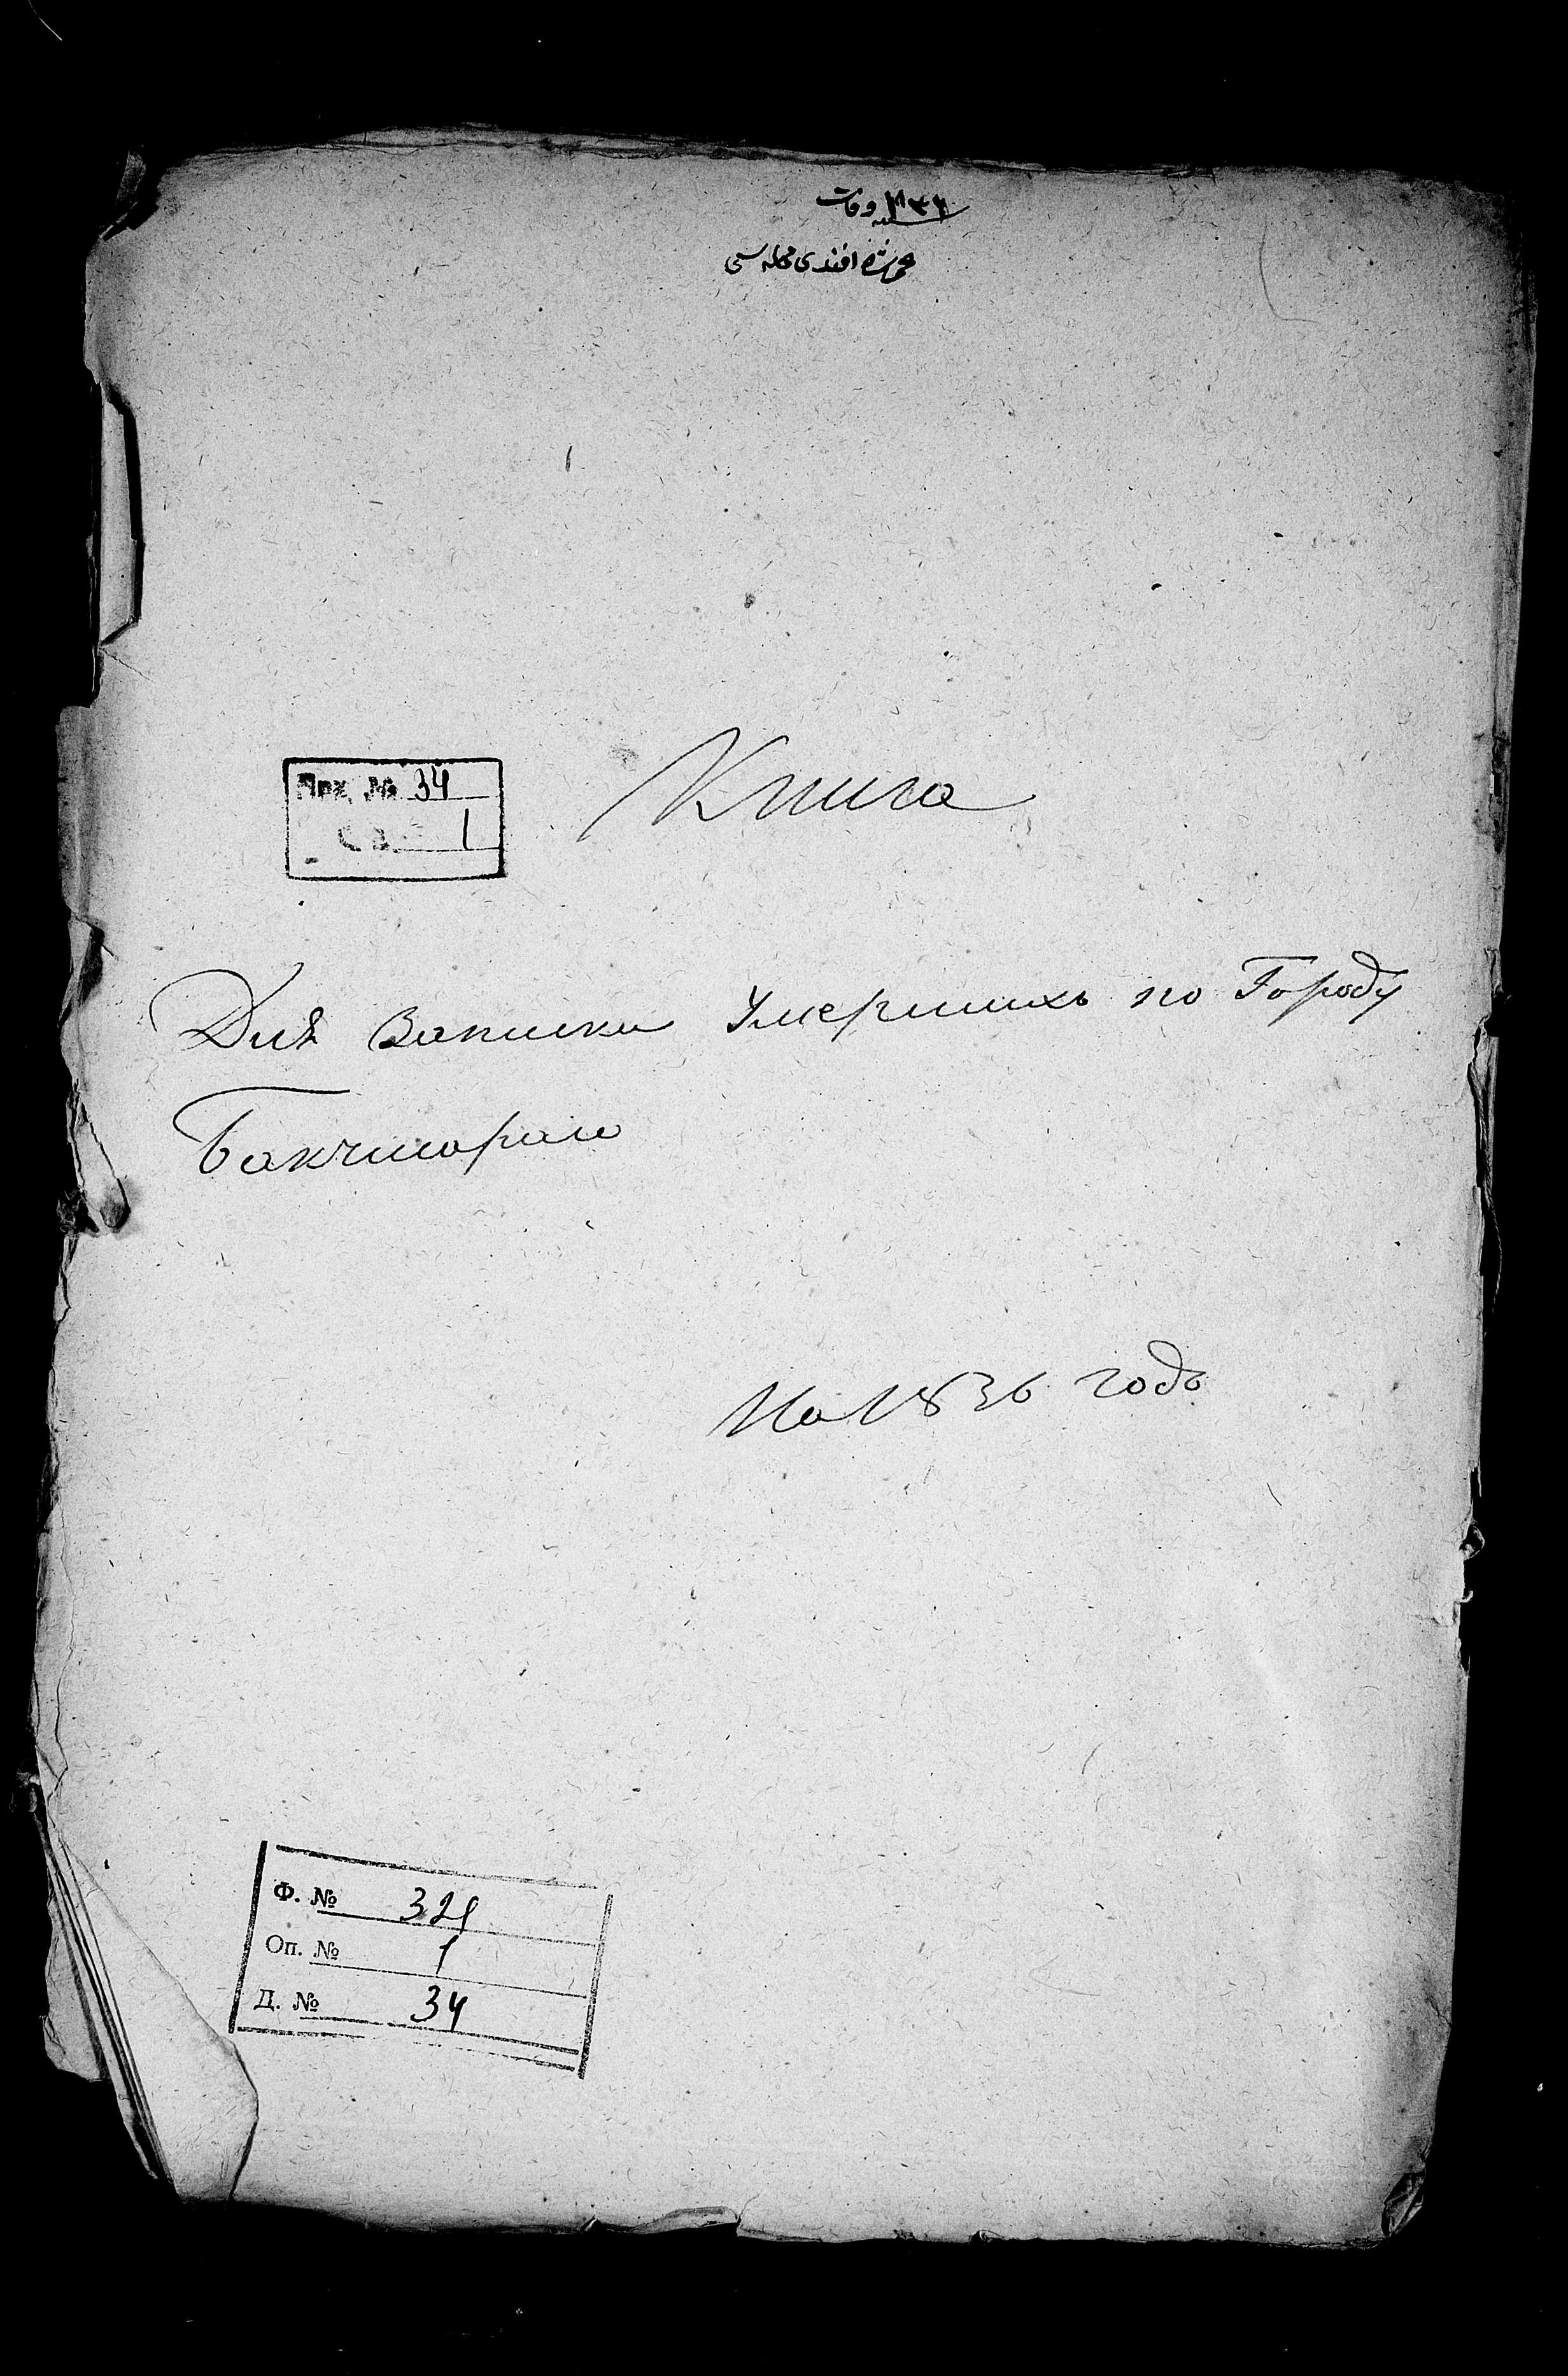 ١٨٣٦ سنه وفات
افندى محله سى
Арх. № 34
1
Книга
Для Записки Умершихъ по Городу
Бакчисараю
На 1836 годъ
Ф. № 321
Оп. № 1
Д. № 34